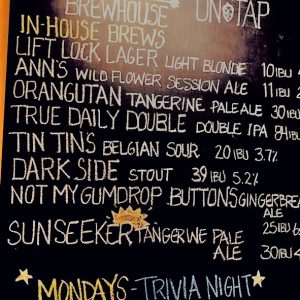 BREWHOUSE ON TAP
IN-HOUSE BREWS
LIFT LOCK LAGER LIGHT BLONDE 10 IBU
ANN'S WILD FLOWER SESSION ALE 11 IBU
ORANGUTAN TANGERINE PALE ALE 30 IBU
TRUE DAILY DOUBLE DOUBLE IPA 84 IBU
TIN TIN'S BELGIAN SOUR 20 IBU 3.7%
DARK SIDE STOUT 39 IBU 5.2%
NOT MY GUMDROP BUTTONS GINGERBREA
ALE 25 IBU
SUNSEEKER TANGERINE PALE
ALE 30 IBU
MONDAYS - TRIVIA NIGHT